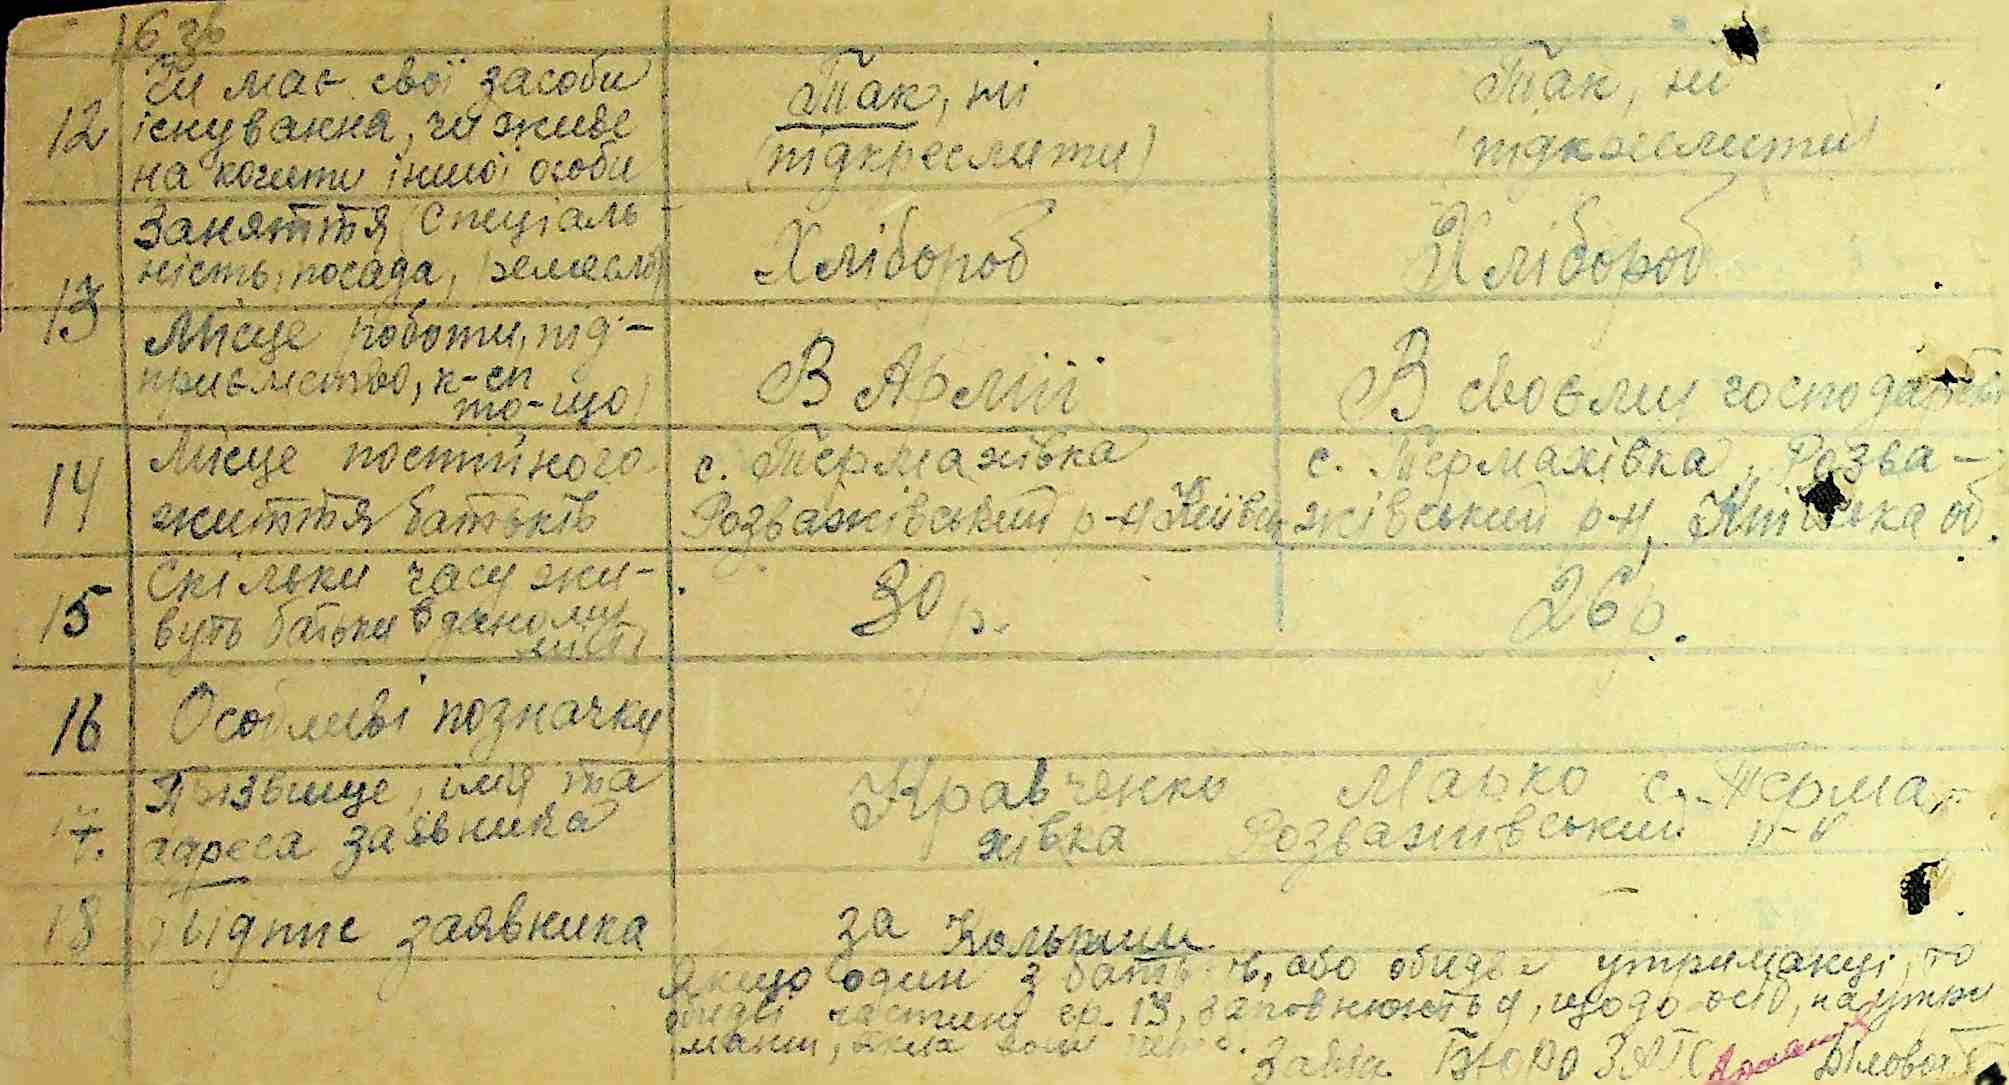 16 зв
12 Чи має свої засоби Так, ні Так, ні
існування, чи живе (підкреслити) (підкреслити)
на кошти іншої особи
Заняття (спеціаль- Хлібороб Хлібороб
ність, посада, ремесло)
13 Місце роботи, під- В Армії В своєму господарстві
приємство, к-сп
то-що)
14 Місце постійного с. Термахівка с. Термахівка, Розва-
життя батьків Розважівський р-н Київ жівський р-н, Київська об.
15 Скільки часу жи- 30 р. 26 р.
вуть батьки в даному
місті
16 Особливі позначки
17. Прізвище, імя та Кравченко Марко с. Терма-
адреса заявника хівка Розважівський р-н
18 Підпис заявника за
Якщо один з батьків, або обидва утриманці, то
обидві частини гр. 13, заповнюються, щодо осіб, на утри
манні, яких вони
Завід. Бюро ЗАГС